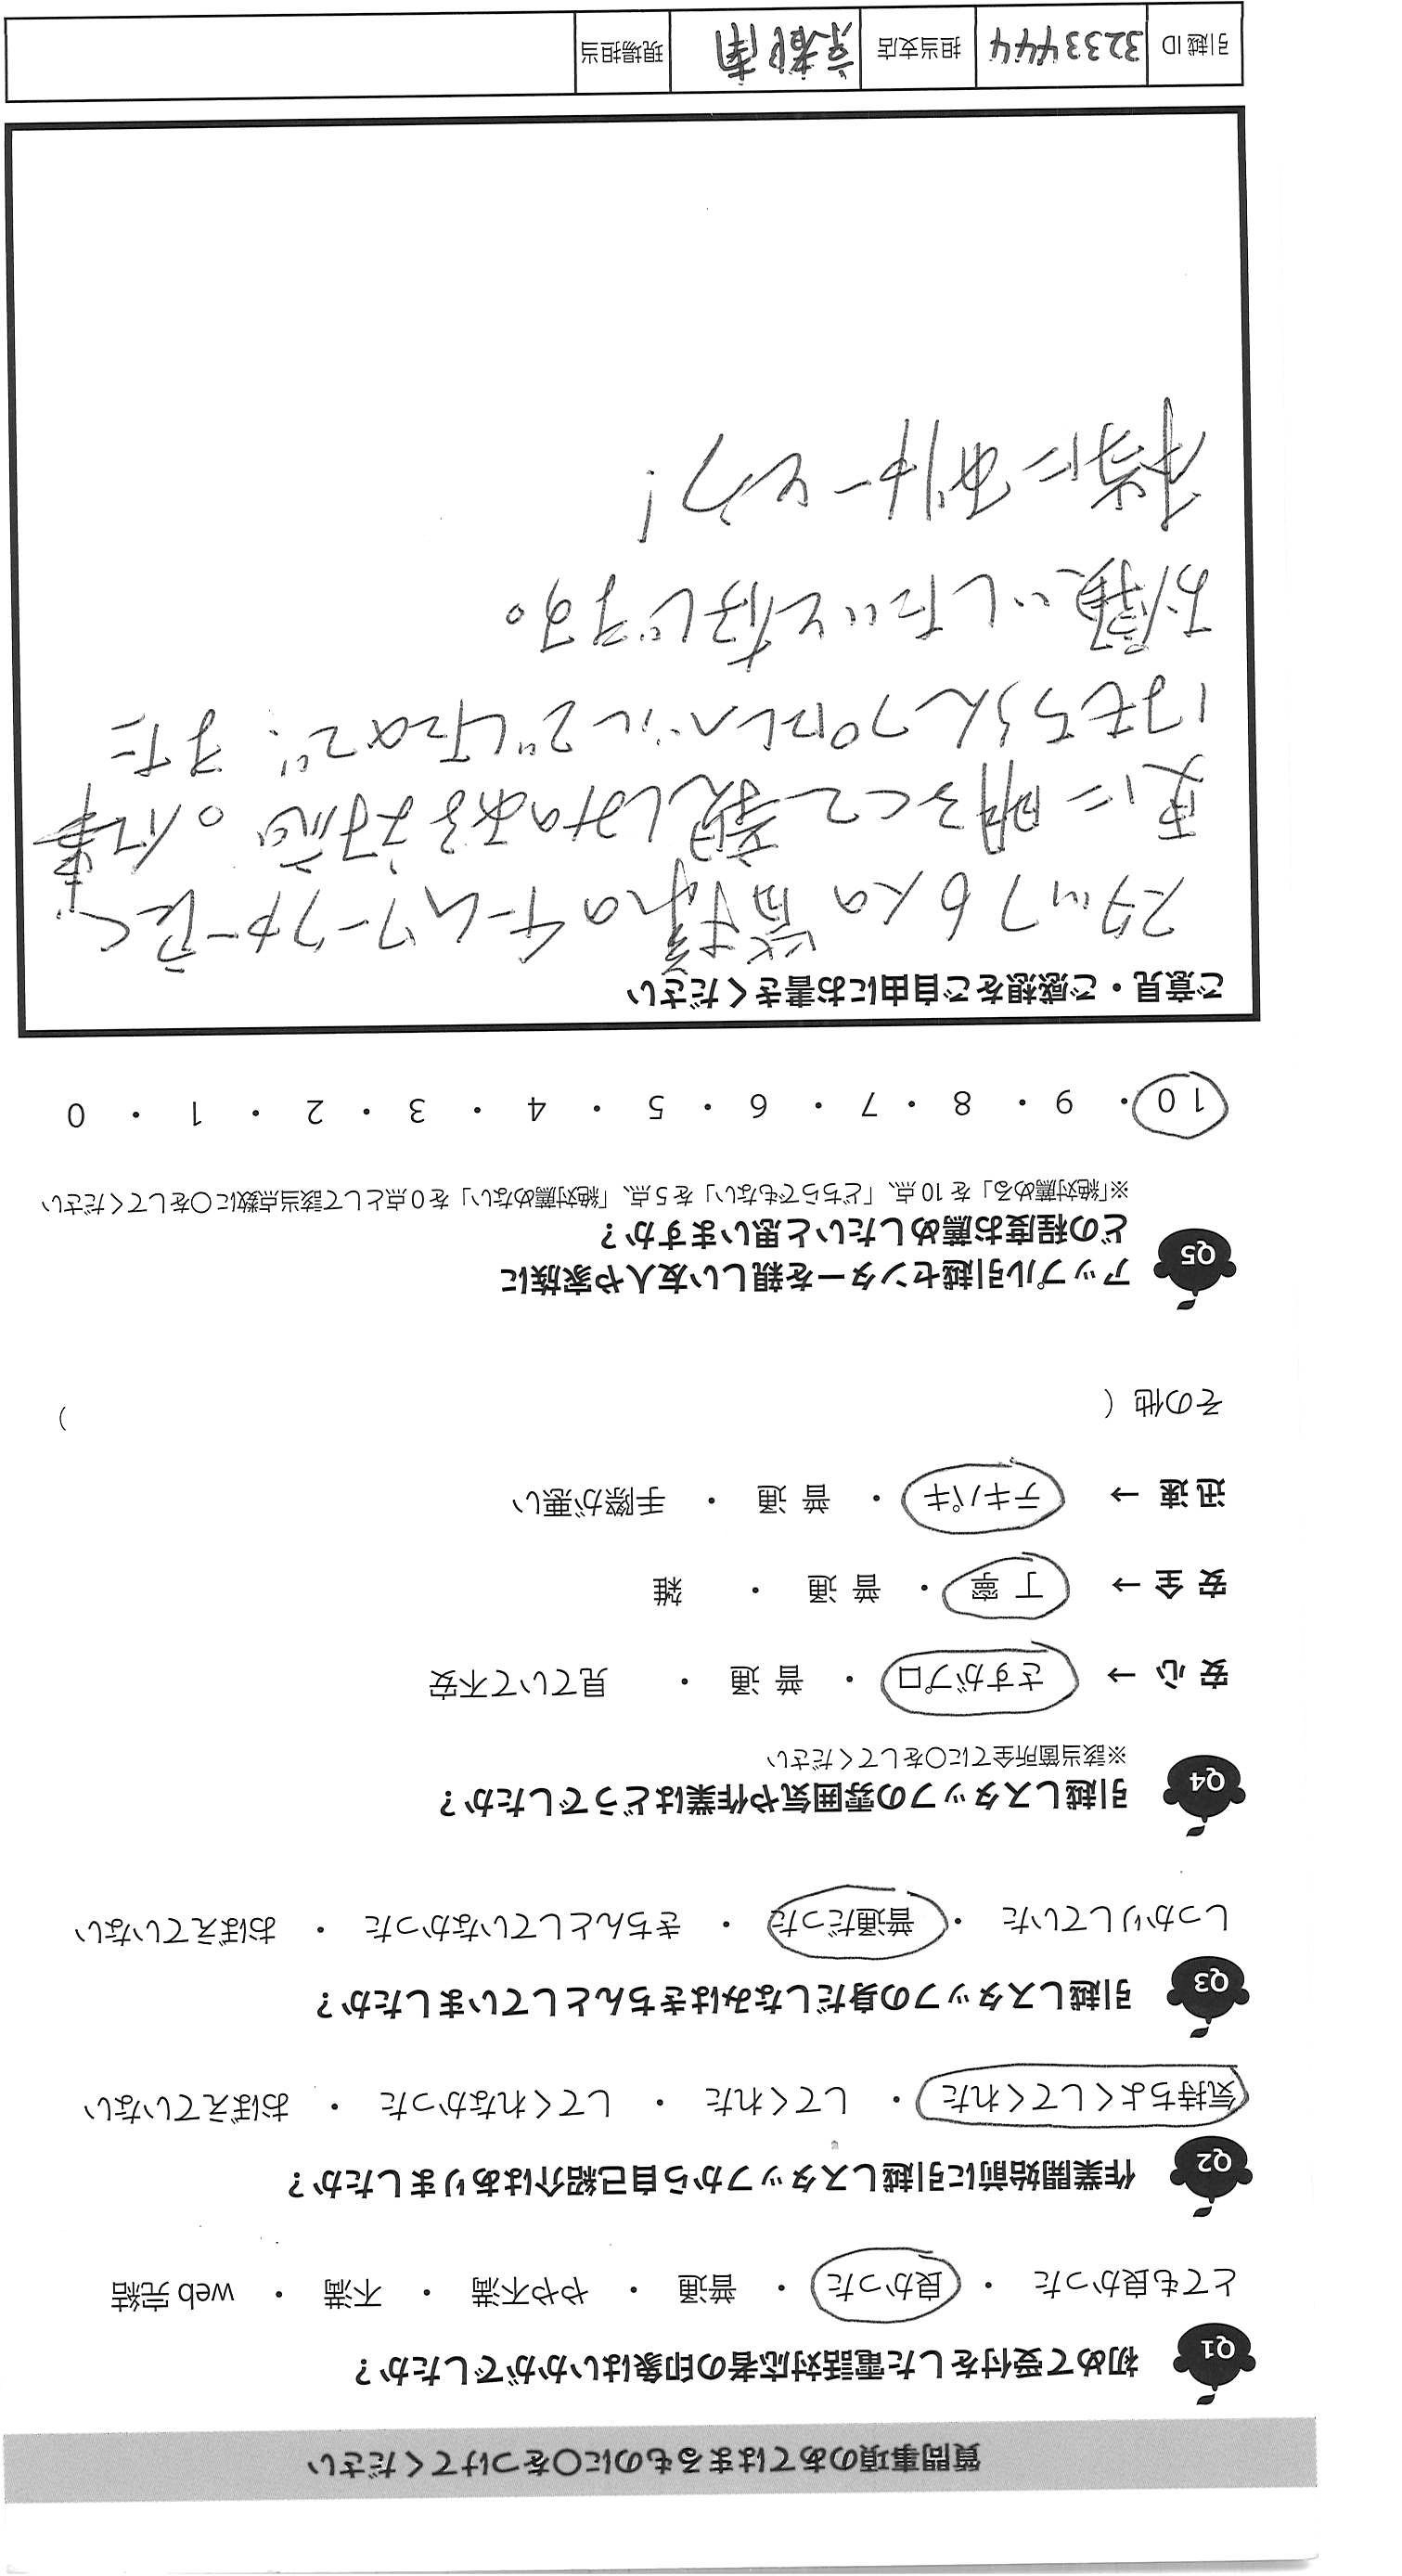 質問事項のあてはまるものに〇をつけてください
Q1 初めて受付をした電話対応者の印象はいかがでしたか？
とても良かった ・ 良かった ・ 普通 ・ やや不満 ・ 不満 ・ web 完結
Q2 作業開始前に引越しスタッフから自己紹介はありましたか？
気持ちよくしてくれた ・ してくれた ・ してくれなかった ・ おぼえていない
Q3 引越しスタッフの身だしなみはきちんとしていましたか？
しっかりしていた ・ 普通だった ・ きちんとしていなかった ・ おぼえていない
Q4 引越しスタッフの雰囲気や作業はどうでしたか？
※該当箇所全てに〇をしてください
安心 → さすがプロ ・ 普通 ・ 見ていて不安
安全 → 丁寧 ・ 普通 ・ 雑
迅速 → テキパキ ・ 普通 ・ 手際が悪い
その他（ ）
Q5 アップル引越センターを親しい友人や家族に
どの程度お薦めしたいと思いますか？
※「絶対薦める」を10点、「どちらでもない」を5点、「絶対薦めない」を0点として該当点数に〇をしてください
10 ・ 9 ・ 8 ・ 7 ・ 6 ・ 5 ・ 4 ・ 3 ・ 2 ・ 1 ・ 0
ご意見・ご感想をご自由にお書きください
スタッフ6人の皆様のチームワークが良く
更に明るくて親しみのある対応。仕事
はもちろんプロレベルでしたので、また
お願いしたいと存じます。
本当にありがとう!
引越ID 3233444 担当支店 京都南 現場担当